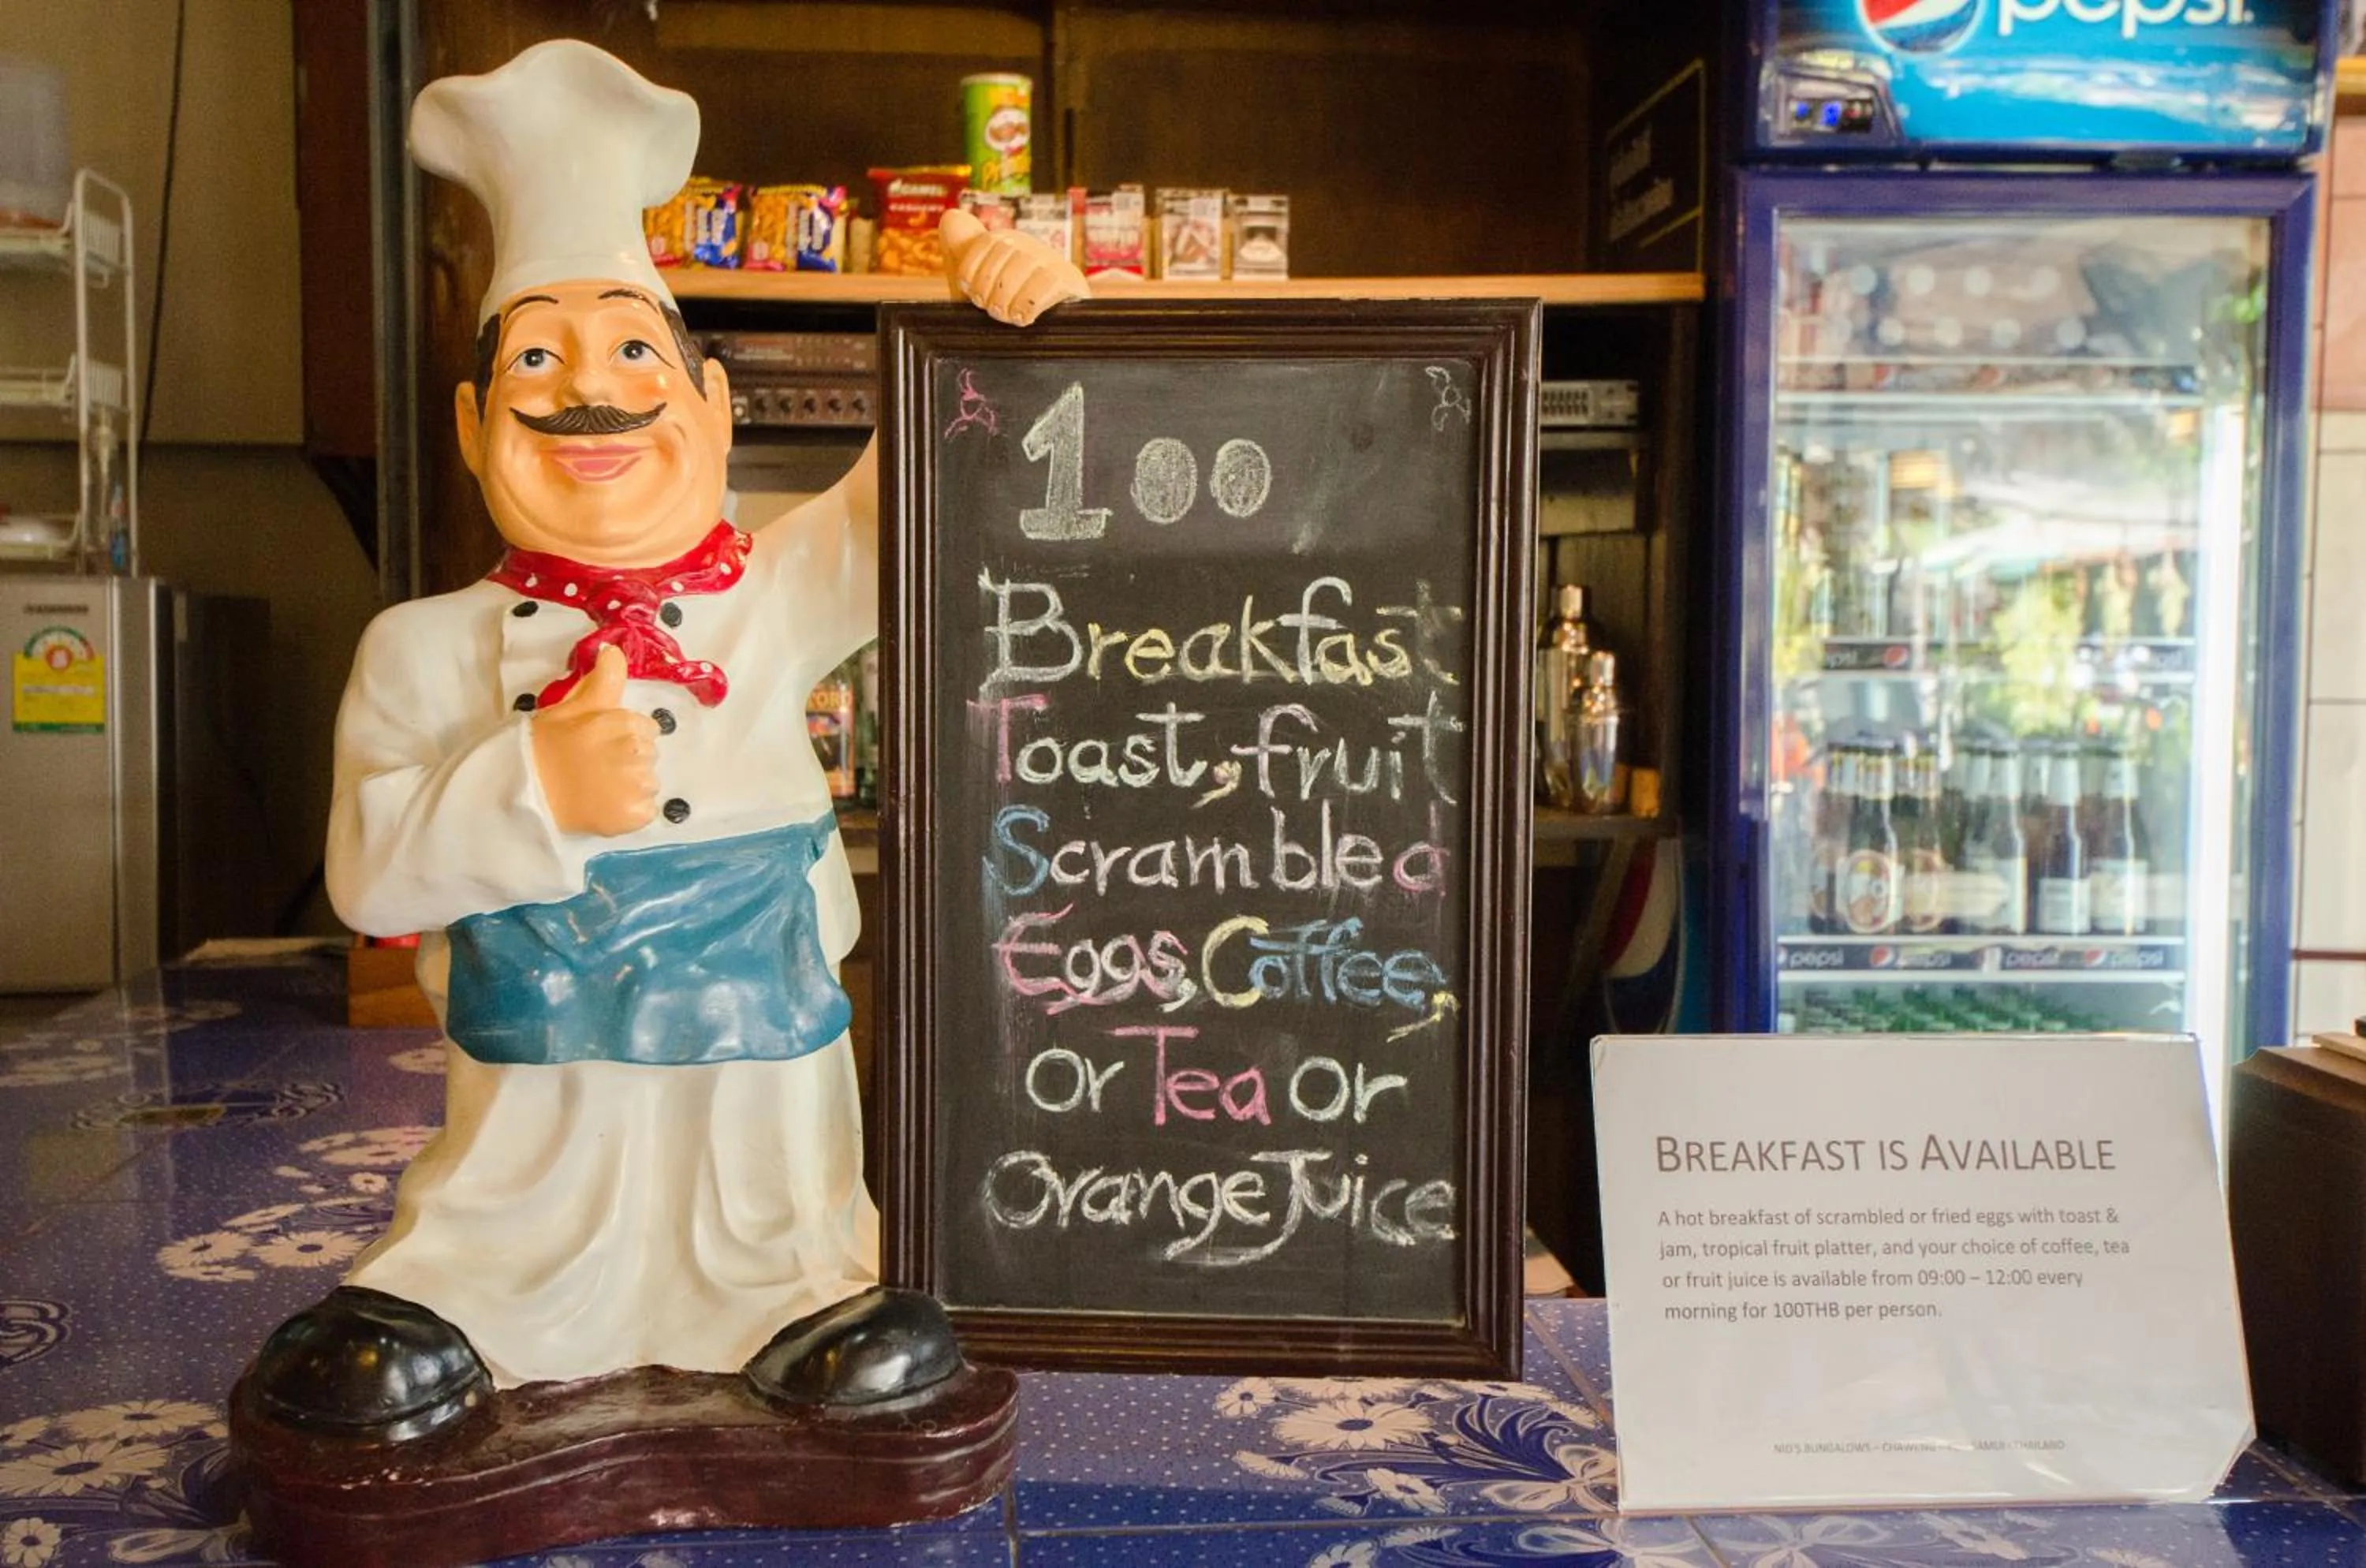 pepsi.
Pringles
CAMEL
100
Breakfast
Toast, fruit
Scrambled
Eggs, Coffee,
or Tea or
Orange Juice
pepsi
pepsi
pepsi
pepsi
BREAKFAST IS AVAILABLE
A hot breakfast of scrambled or fried eggs with toast &
jam, tropical fruit platter, and your choice of coffee, tea
or fruit juice is available from 09:00 – 12:00 every
morning for 100THB per person.
BUNGALOWS - SAMUI - THAILAND